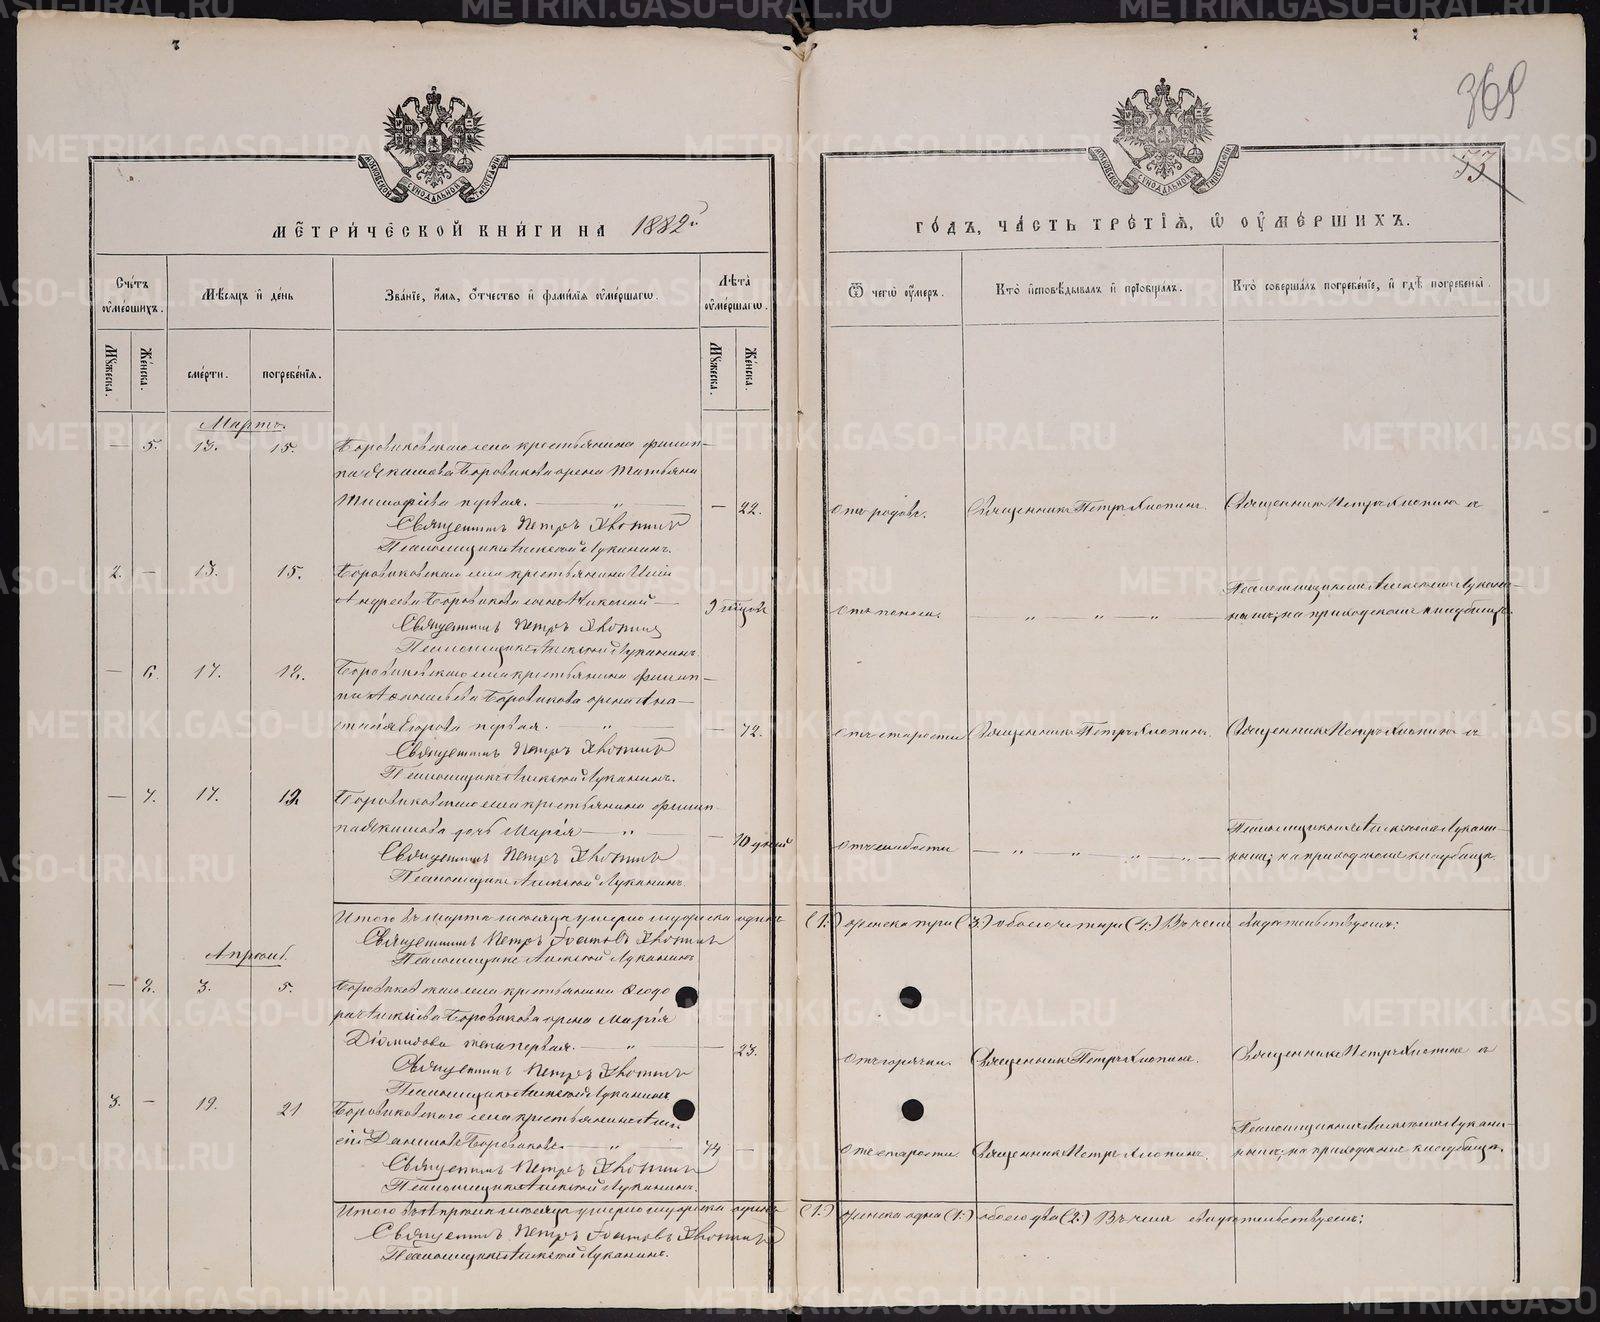 369
55
МОСКОВСКОЙ СѴНОДАЛЬНОЙ ТИПОГРАФІИ
МОСКОВСКОЙ СѴНОДАЛЬНОЙ ТИПОГРАФІИ
МЕТРИЧЕСКОЙ КНИГИ НА 1882й
ГОДЪ, ЧАСТЬ ТРЕТІѦ, Ѡ ОУМЕРШИХЪ.
Счетъ оумершихъ.
Мѣсяцъ и день
Званіе, имя, отчество и фамилія оумершагѡ.
Лѣта оумершагѡ.
Ѿ чегѡ оумеръ.
Кто исповѣдывалъ и пріобщалъ.
Кто совершалъ погребеніе, и гдѣ погребены.
Мужеска.
Женска.
смерти.
погребенія.
Мужеска.
Женска.
Мартъ.
— 5. 13. 15. Боровиковскаго села крестьянина Филип-
па Якимова Боровикова жена Татьяна
Тимофіева первая. — „ — — 22. Отъ родовъ. Священникъ Петръ Хлопинъ. Священникъ Петръ Хлопинъ съ
Священникъ Петръ Хлопинъ
Псаломщикъ Алексѣй Луканинъ.
2. — 13. 15. Боровиковскаго села крестьянина
Псаломщикомъ Алексѣемъ Лукани-
Андреева Боровикова сынъ Николай — Отъ поноса. — „ — „ — „ — нымъ; на приходскомъ кладбищѣ.
Священникъ Петръ Хлопинъ
Псаломщикъ Алексѣй Луканинъ.
— 6. 17. Боровиковскаго села крестьянина Филип-
па Боровикова жена Ана-
стасія Егорова первая. — „ — — 72. Отъ старости Священникъ Петръ Хлопинъ. Священникъ Петръ Хлопинъ съ
Священникъ Петръ Хлопинъ
Псаломщикъ Алексѣй Луканинъ.
— 7. 17. Боровиковскаго села крестьянина Филип-
Псаломщикомъ Алексѣемъ Лукани-
па Якимова дочь Марія — „ — — 10 дней Отъ слабости — „ — „ — „ — „ — нымъ; на приходскомъ кладбищѣ.
Священникъ Петръ Хлопинъ
Псаломщикъ Алексѣй Луканинъ.
Итого въ Мартѣ мѣсяцѣ умерло мужеска одинъ (1:) женска три (3:) обоего четыре (4:) Въ чемъ свидѣтельствуемъ:
Священникъ Петръ Хлопинъ
Псаломщикъ Алексѣй Луканинъ
Апрѣль.
— 2. 3. 5. Боровиковскаго села крестьянина Ѳедо
ра Алексіева Боровикова жена Марія
Діомидова жена первая. — „ — — 23. Отъ горячки. Священникъ Петръ Хлопинъ. Священникъ Петръ Хлопинъ съ
Священникъ Петръ Хлопинъ
Псаломщикъ Алексѣй Луканинъ
3. — 19. 21 Боровиковскаго села крестьянинъ Алек-
Псаломщикомъ Алексѣемъ Лукани-
сѣй Даниловъ Боровиковъ. — „ — 74 — Отъ старости. Священникъ Петръ Хлопинъ. нымъ; на приходскомъ кладбищѣ.
Священникъ Петръ Хлопинъ
Псаломщикъ Алексѣй Луканинъ.
Итого въ Апрѣлѣ мѣсяцѣ умерло мужеска одинъ (1:) женска одна (1:) обоего два (2:) Въ чемъ свидѣтельствуемъ:
Священникъ Петръ Хлопинъ
Псаломщикъ Алексѣй Луканинъ.
METRIKI.GASO-URAL.RU